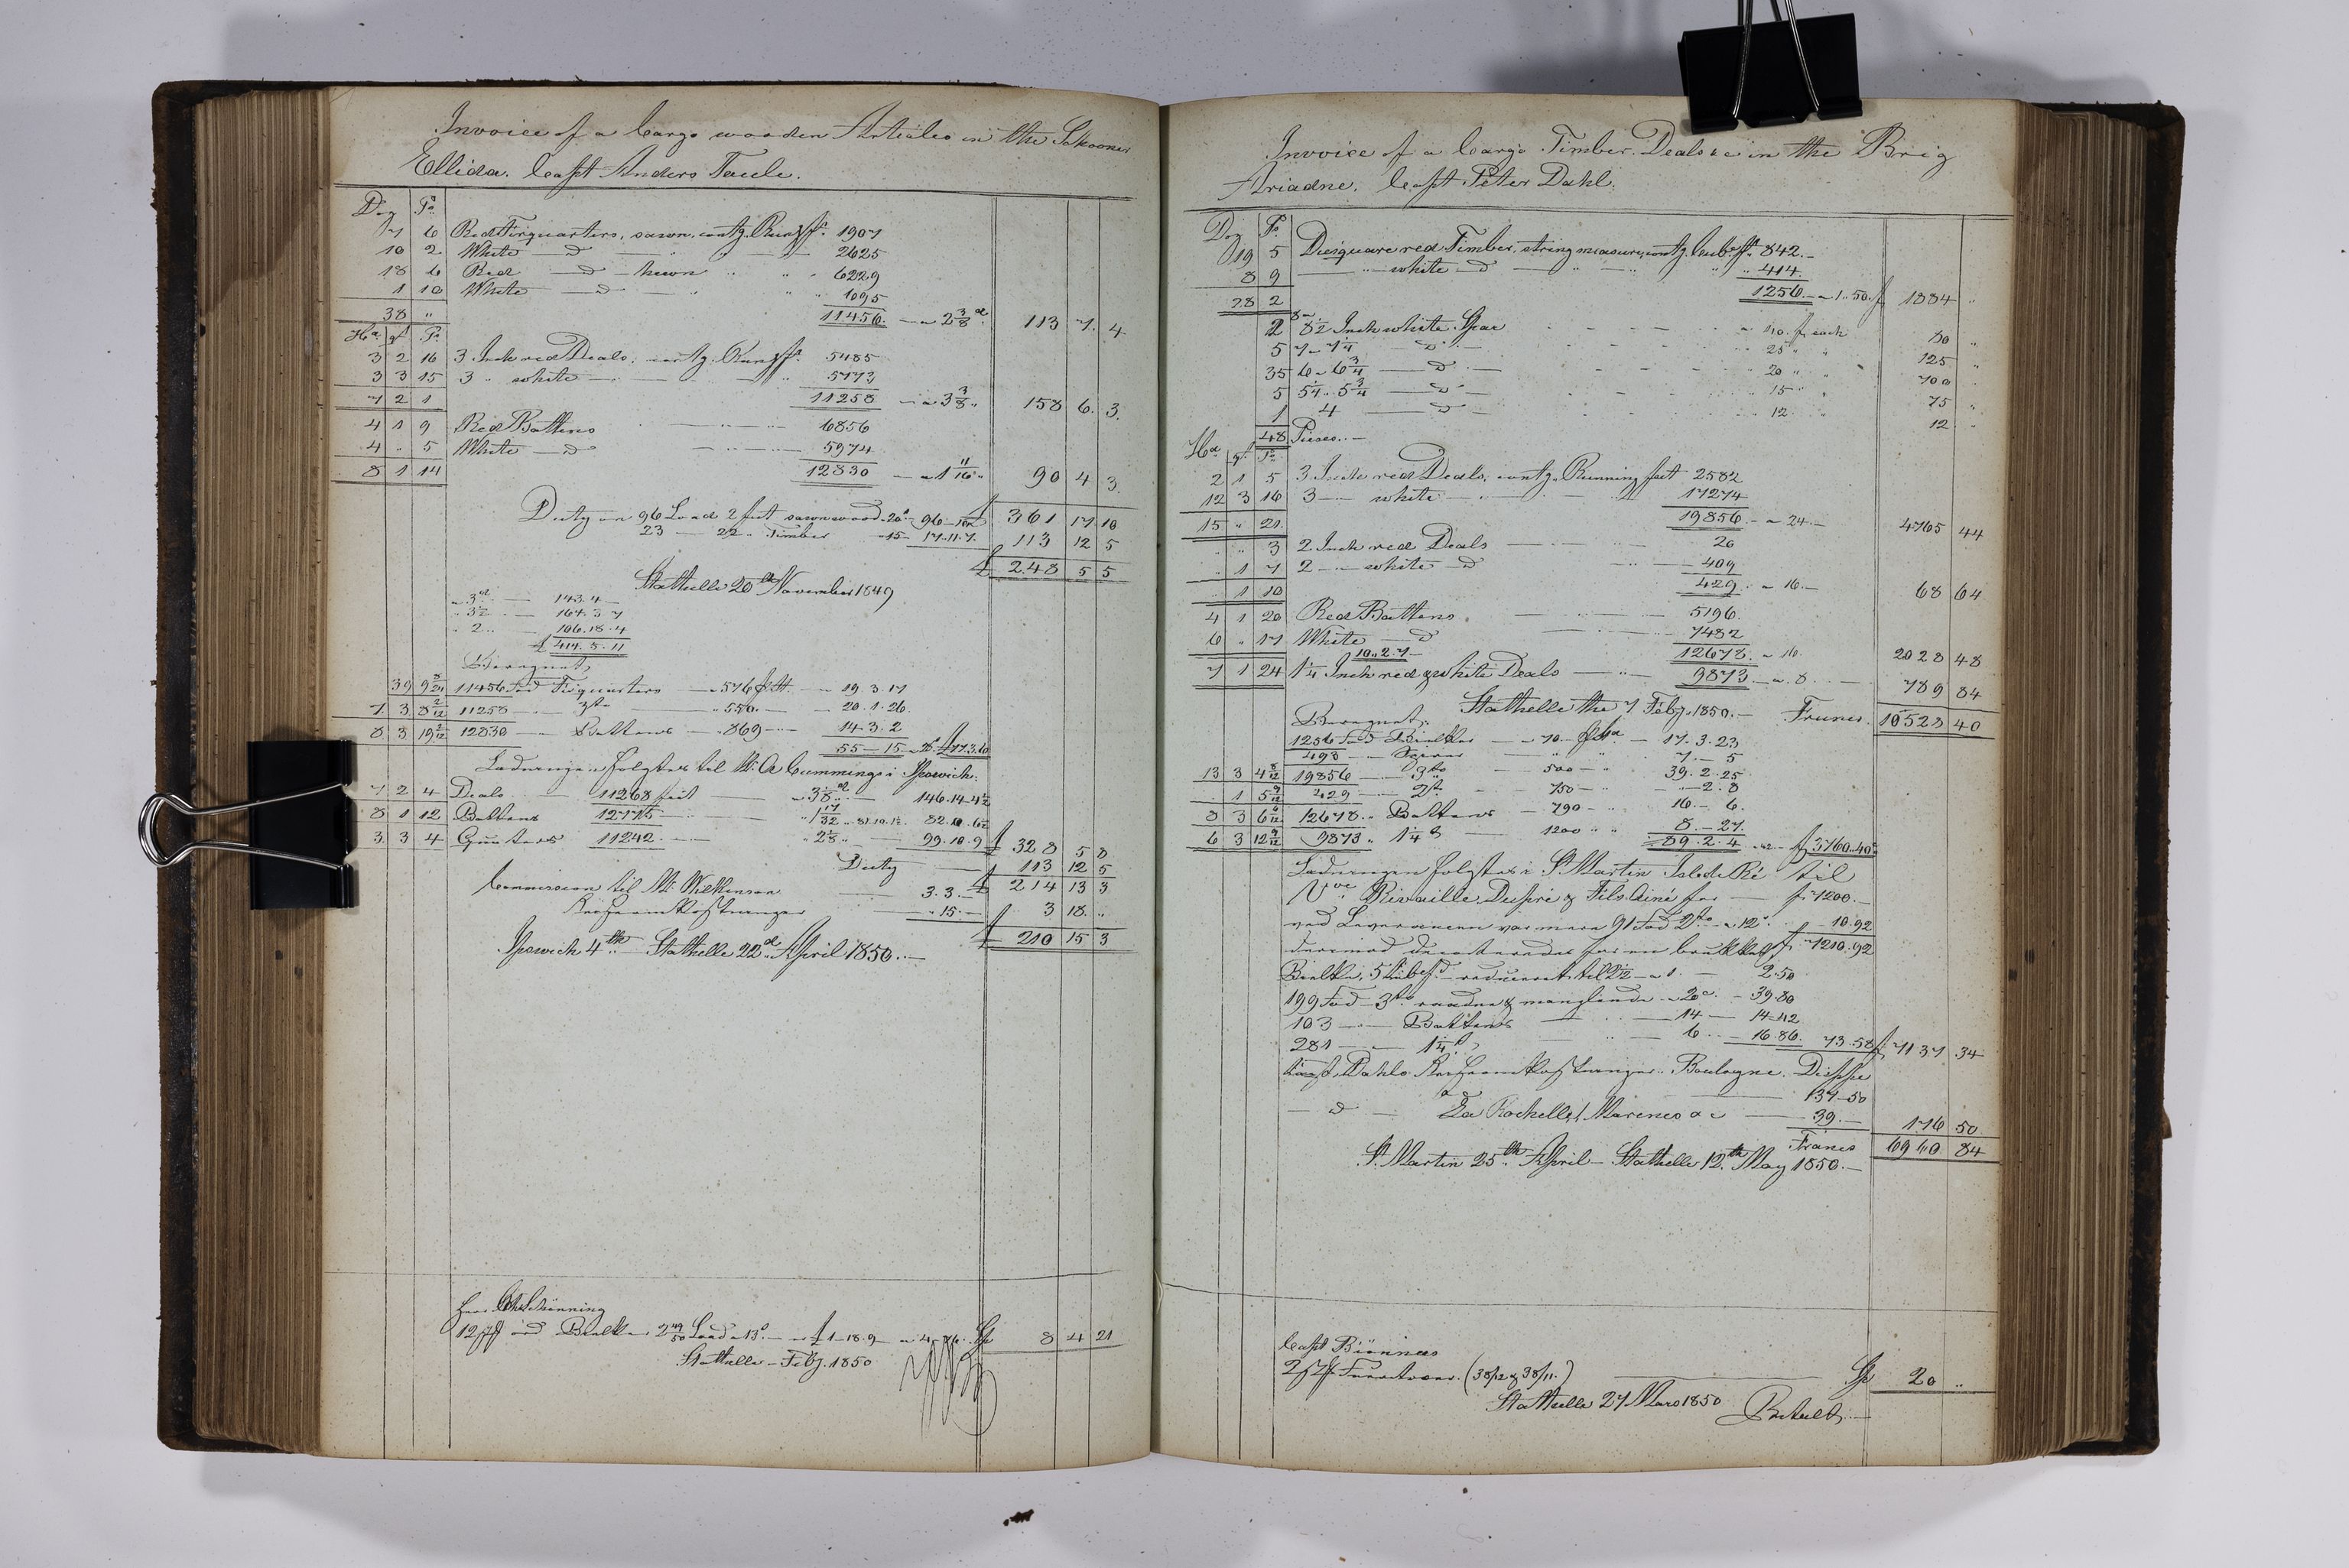 Invoice of a Cargo wooden Articles in the Schooner
Ellida. Capt Anders Taule.
Dz Ps
7 6 Red Firquarters, sawn, contg. Rung ft. 1907
10 2 White — d — 2625
18 6 Red — d — hewn 6229
1 10 White — d — 1095
38 " 11456. — a 2 3/8 d. 113 7. 4.
Hd. qt Ps
3 2 16 3 Inch red Deals, contg. Rung ft. 5485
3 3 15 3 " white — 5773
7 2 1 11258 — a 3 3/8 " 158 6. 3.
4 1 9 Red Battens 6856
4 " 5 White — d 5974
8 1 14 12830 — a 1 11/16 " 90 4 3.
Duty on 96 Load 2 feet sawn wood a 20s 96 — £ 361 17 10
23 — 22 " Timber " 15 — 17.11.7. 113 12 5
£ 248 5 5
Stathelle 20th November 1849
a 3d — 143.4 —
" 3 1/2 — 164.3.7
" 2 " — 106.18.4
£ 414.5.11
Beregnet,
39 9 11456 Fod Firquarters — a 576 — 19.3.17
7 3 8 2/12 11258 — 3ts — " 550 — 20.1.26.
8 3 19 2/12 12830 — Battens — 869 — 14.3.2
55 — 15
Ladningen solgtes til W. A Cummings i Ipswich.
7 2 4 Deals 11268 feet — a 3 1/8 d — 146.14.4 1/2
8 1 12 Battens 12775 — " 1 17/32 " 82.10.6 1/2
3 3 4 Quarters 11242 — " 2 1/8 " — 99.10.9 £ 328 5 8
Duty — 113 12 5
£ 214 13 3
Commission til Mr Wilkinson — 3.3.—
— " 15. — 3 18. "
£ 210 15 3
Ipswich 4th — Stathelle 22d April 1850. —
Schönning
Load a 13s — £ 1-18.9 Sp 8 4 21
Stathelle — Feby. 1850
Invoice of a Cargo Timber Deals &c in the Brig
Ariadne. Capt Peter Dahl.
Dz Ps
19 5 Diesquare red Timber, string measure, contg. Cub. ft. 842. —
8 9 — " white — d — 414.
28 2 1256. — a 1.50. f 1884 "
2 8 a 8 1/2 Inch white Spar a 40. f. each 80 "
5 7 a 7 1/4 — d — 25 " " 125 "
35 6 a 6 3/4 — d — 20 " " 700 "
5 5 1/4 a 5 3/4 — d — 15 " 75 "
1 4 — d — 12 " 12 "
48 Pieces. —
Hd qt Ps
2 1 5 3 Inch red Deals, contg. Running feet 2582
12 3 16 3 — white — 17274
15 " 21 19856. — a 24. — 4765 44
" " 3 2 Inch red Deals — 20
" 1 7 2 — white — d — 409
" 1 10 429 " a 16. — 68 64
4 1 20 Red Battens 5196.
6 " 17 White — d 7482
10.2.7. — 12678. a 16. 2028 48
7 1 24 1 1/4 Inch red & white Deals — " 9873 — a 8 — 789 84
Stathelle the 7 Feby. 1850. — Francs. 10528 40
Beregnet,
1256 Fod Bielker — a 70 — 17.3.23
493 — 7. — 5
13 3 4 8/12 19856 — 3ts — 500 — " 39.2.25
" 1 5 9/12 429 — 2ts — 750 — " — 2.8
8 3 6 6/12 12678 " Battens — 790 — " 16. — 6.
6 3 12 9/12 9873 " 1 1/4 — 1200 " " 8. — 27.
89.2.4 — f 3760.40
Ladningen solgtes i St Martin Isle de Ré til
Vve Rivaille Dupré & Fils Ainé for — f 7200. —
ved Leverancen var mere 91 Fod 2ts — a 12c 10.92
f 7210.92
Bielke, — a 1. — 2.50
199 Fod — 3ts raadne & manglende a 20c. — 39.80
103 — Battens — 14 — 14.42
281 — 1 1/4 — 6 — 16.86. 73.58 f 7137 34
Capt. Dahls Boulogne, Dieppe
— 137.50
— d — La Rochelle, Marennes &c — 39. — 176 50
Francs 6960 84
St. Martin 25th April — Stathelle 12th May 1850. —
Capt Biönnes
(38/12 & 38/11.) — Sp 20 "
Stathelle 27 Mars 1850 Betalt. —